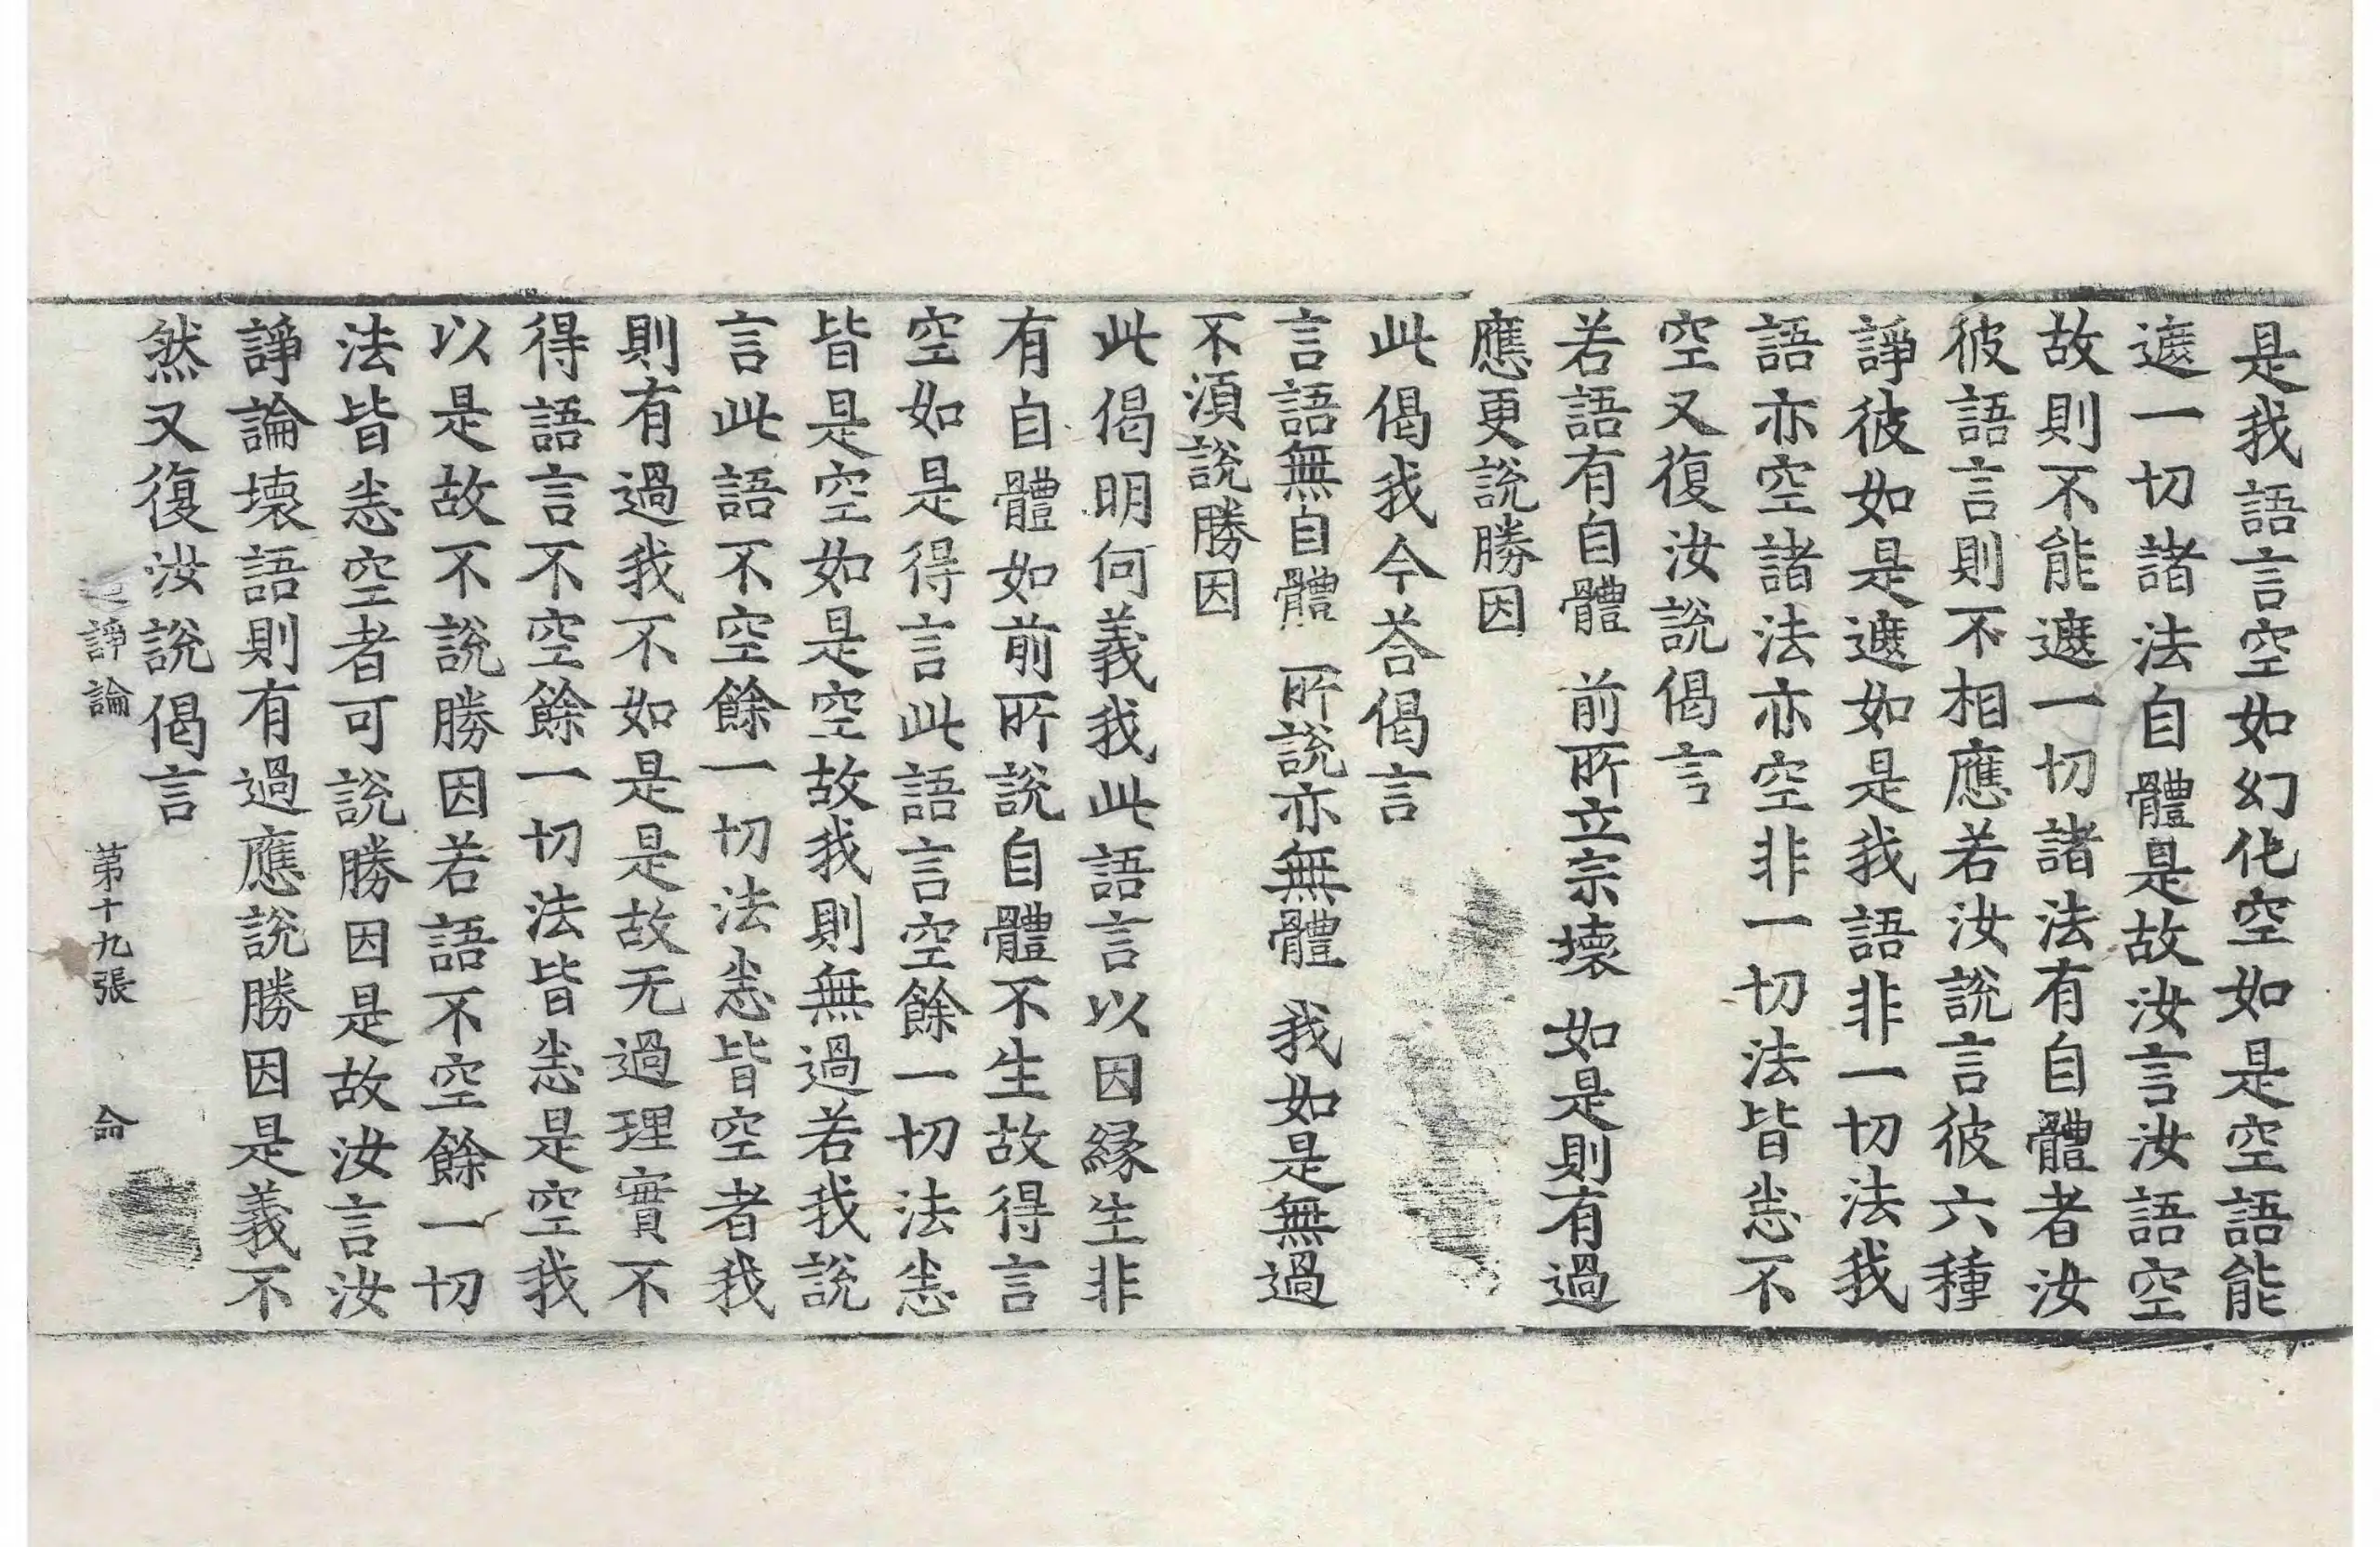 是我語言空如幻化空如是空語能
遮一切諸法自體是故汝言汝語空
故則不能遮一切諸法有自體者汝
彼語言則不相應若汝說言彼六種
諍彼如是遮如是我語非一切法我
語亦空諸法亦空非一切法皆悉不
空又復汝說偈言
若語有自體　前所立宗壞　如是則有過
應更說勝因
此偈我今荅偈言
言語無自體　所說亦無體　我如是無過
不湏說勝因
此偈明何義我此語言以因縁生非
有自體如前所說自體不生故得言
空如是得言此語言空餘一切法悉
皆是空如是空故我則無過若我說
言此語不空餘一切法悉皆空者我
則有過我不如是是故无過理實不
得語言不空餘一切法皆悉是空我
以是故不說勝因若語不空餘一切
法皆悉空者可說勝因是故汝言汝
諍論壞語則有過應說勝因是義不
然又復汝說偈言
諍論　第十九張　命